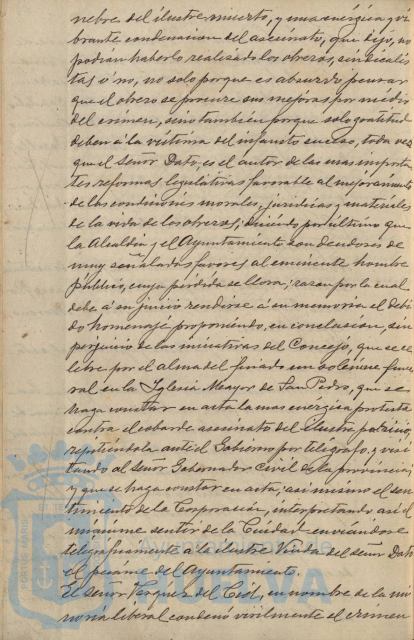 nebre del ilustre muerto, y una enérgica y vi
brante condenacion del asesinato, que dijo, no
podian haberlo realizado los obreros, sindicalis
tas ó no, no solo porque es absurdo pensar
que el obrero se procure sus mejoras por medio
del crimen, sino tambien porque solo gratitud
deben á la víctima del infausto suceso, toda vez
que el Señor Dato, es el autor de las mas importan
tes reformas legislativas favorable al mejoramiento
de las condiciones morales, juridicas y materiales
de la vida de los obreros; diciendo por último que
la Alcaldia y el Ayuntamiento son deudores de
muy señalados favores al eminente hombre
público, cuya perdida se llora; razon por la cual
debe á su juicio rendirse á su memoria el debi
do homenage proponiendo, en conclusion, sin
perjuicio de las iniciativas del Concejo, que se ce
lebre por el alma del finado un solemne fune
ral en la Iglesia Mayor de San Pedro, que se
haga constar en acta la mas enérgica protesta
contra el cobarde asesinato del ilustre patricio,
repitiendola ante el Gobierno por telégrafo, y visi
tando al señor Gobernador civil de la provincia;
y que se haga constar en acta, asi mismo el sen
timiento de la Corporacion, interpretando asi el
unánime sentir de la Ciudad enviándose
telégraficamente a la ilustre Viuda del señor Dato
el pésame del Ayuntamiento.
El Señor Vazquez del Cid, en nombre de la mi
noria liberal condenó virilmente el crimen